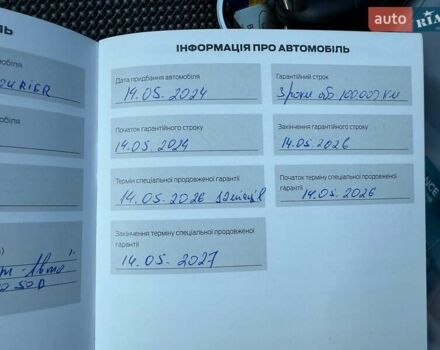 auto RIA
ІНФОРМАЦІЯ ПРО АВТОМОБІЛЬ
Дата придбання автомобіля
14.05.2024
Гарантійний строк
3 роки або 100000 км
Початок гарантійного строку
14.05.2024
Закінчення гарантійного строку
14.05.2026
Термін спеціальної продовженої гарантії
14.05.2026 12 місяців
Початок терміну спеціальної продовженої
гарантії
14.05.2026
Закінчення терміну спеціальної продовженої
гарантії
14.05.2027